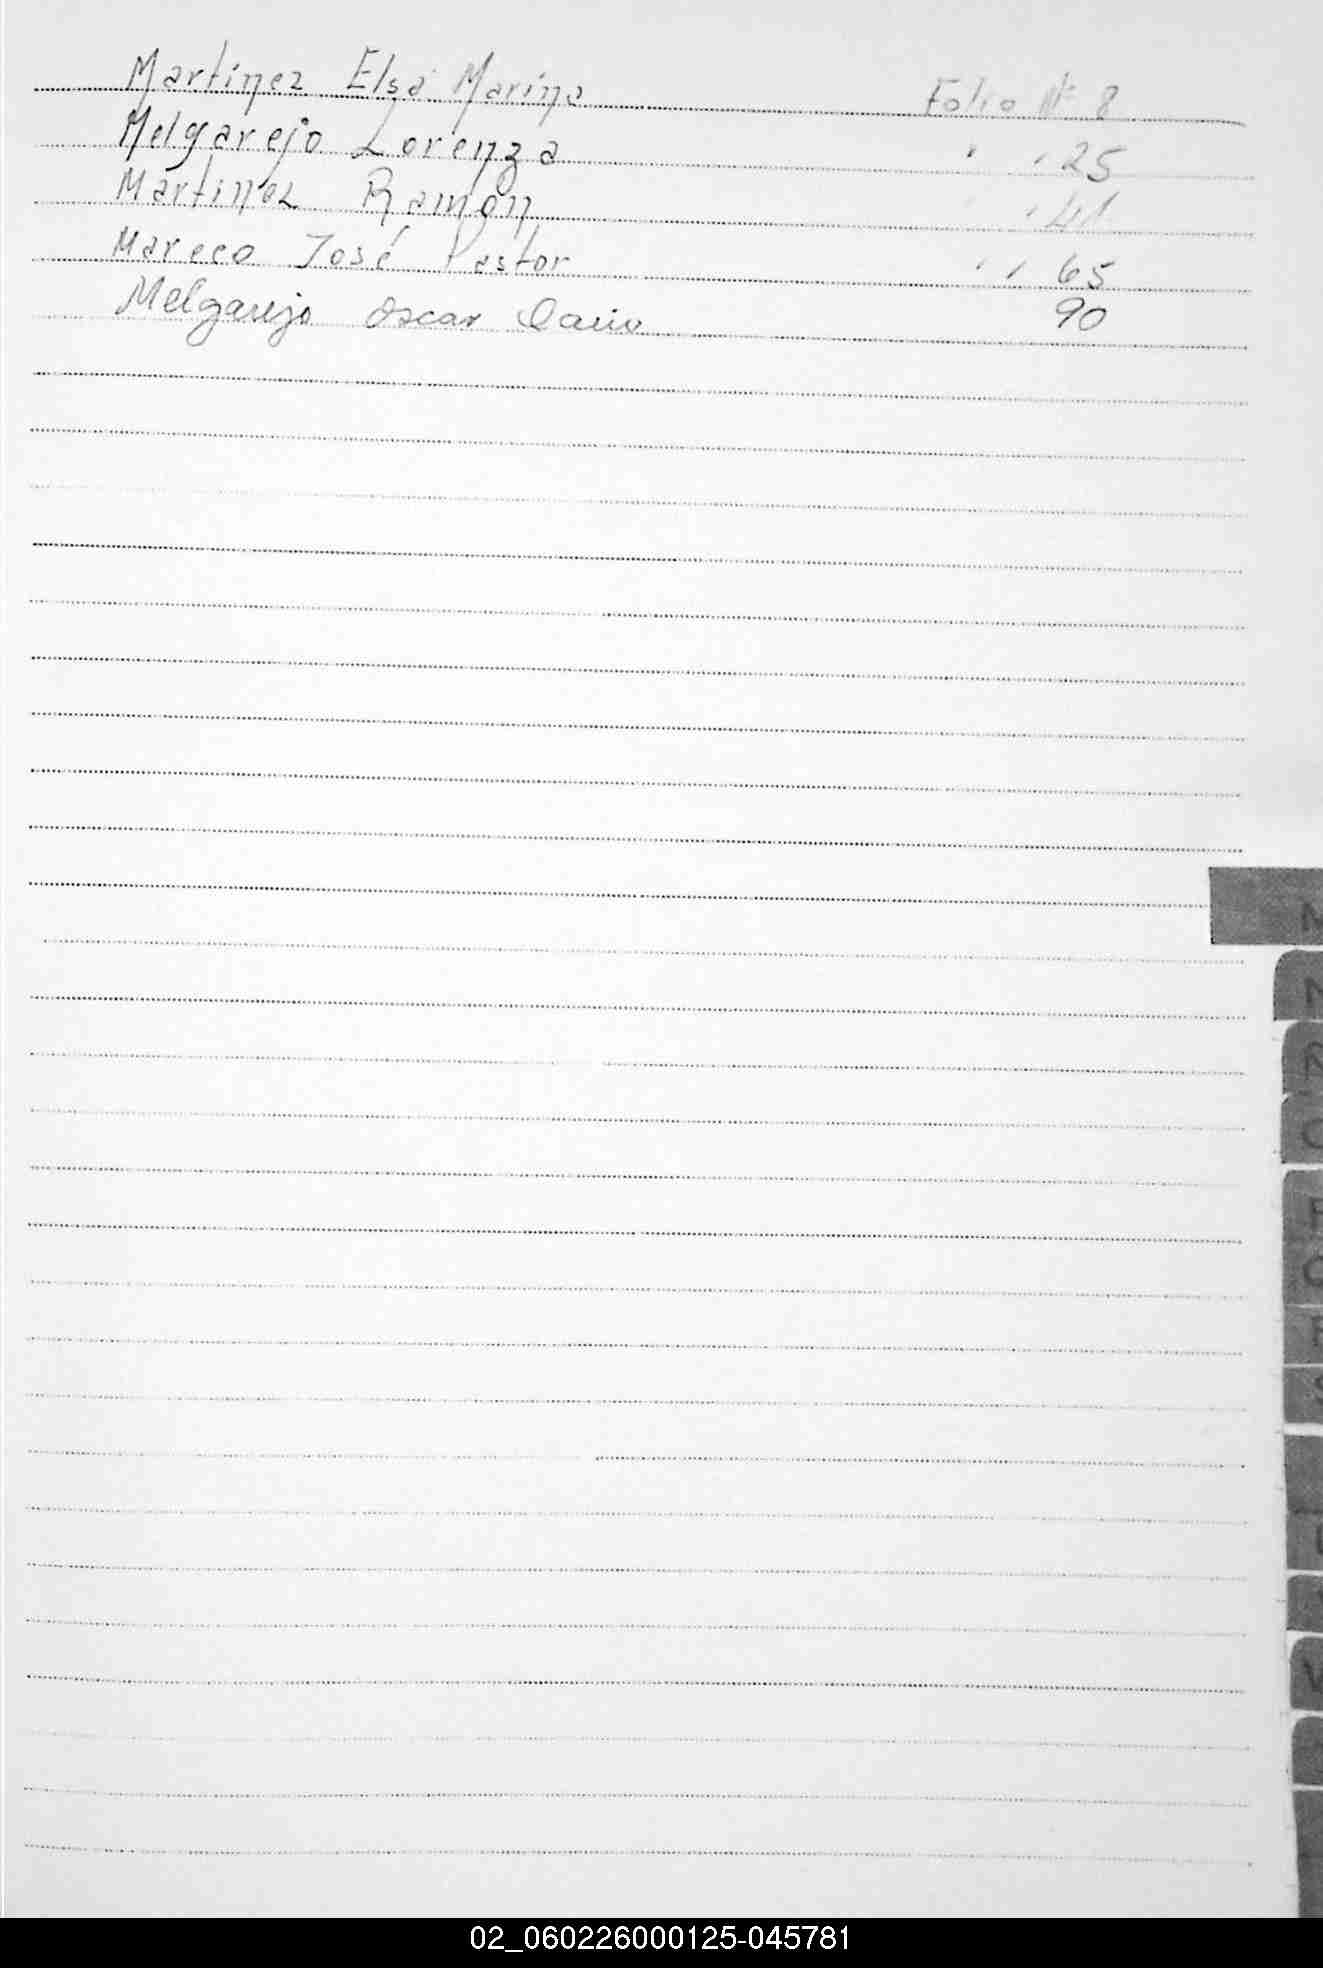 Martínez Elsa Marina Folio Nº 8
Melgarejo Lorenza " " 25
Martínez Ramón " " 41
Mareco José Pastor " " 65
Melgarejo Oscar Dario 90
M
N
Ñ
O
P
Q
R
S
U
V
02_060226000125-045781